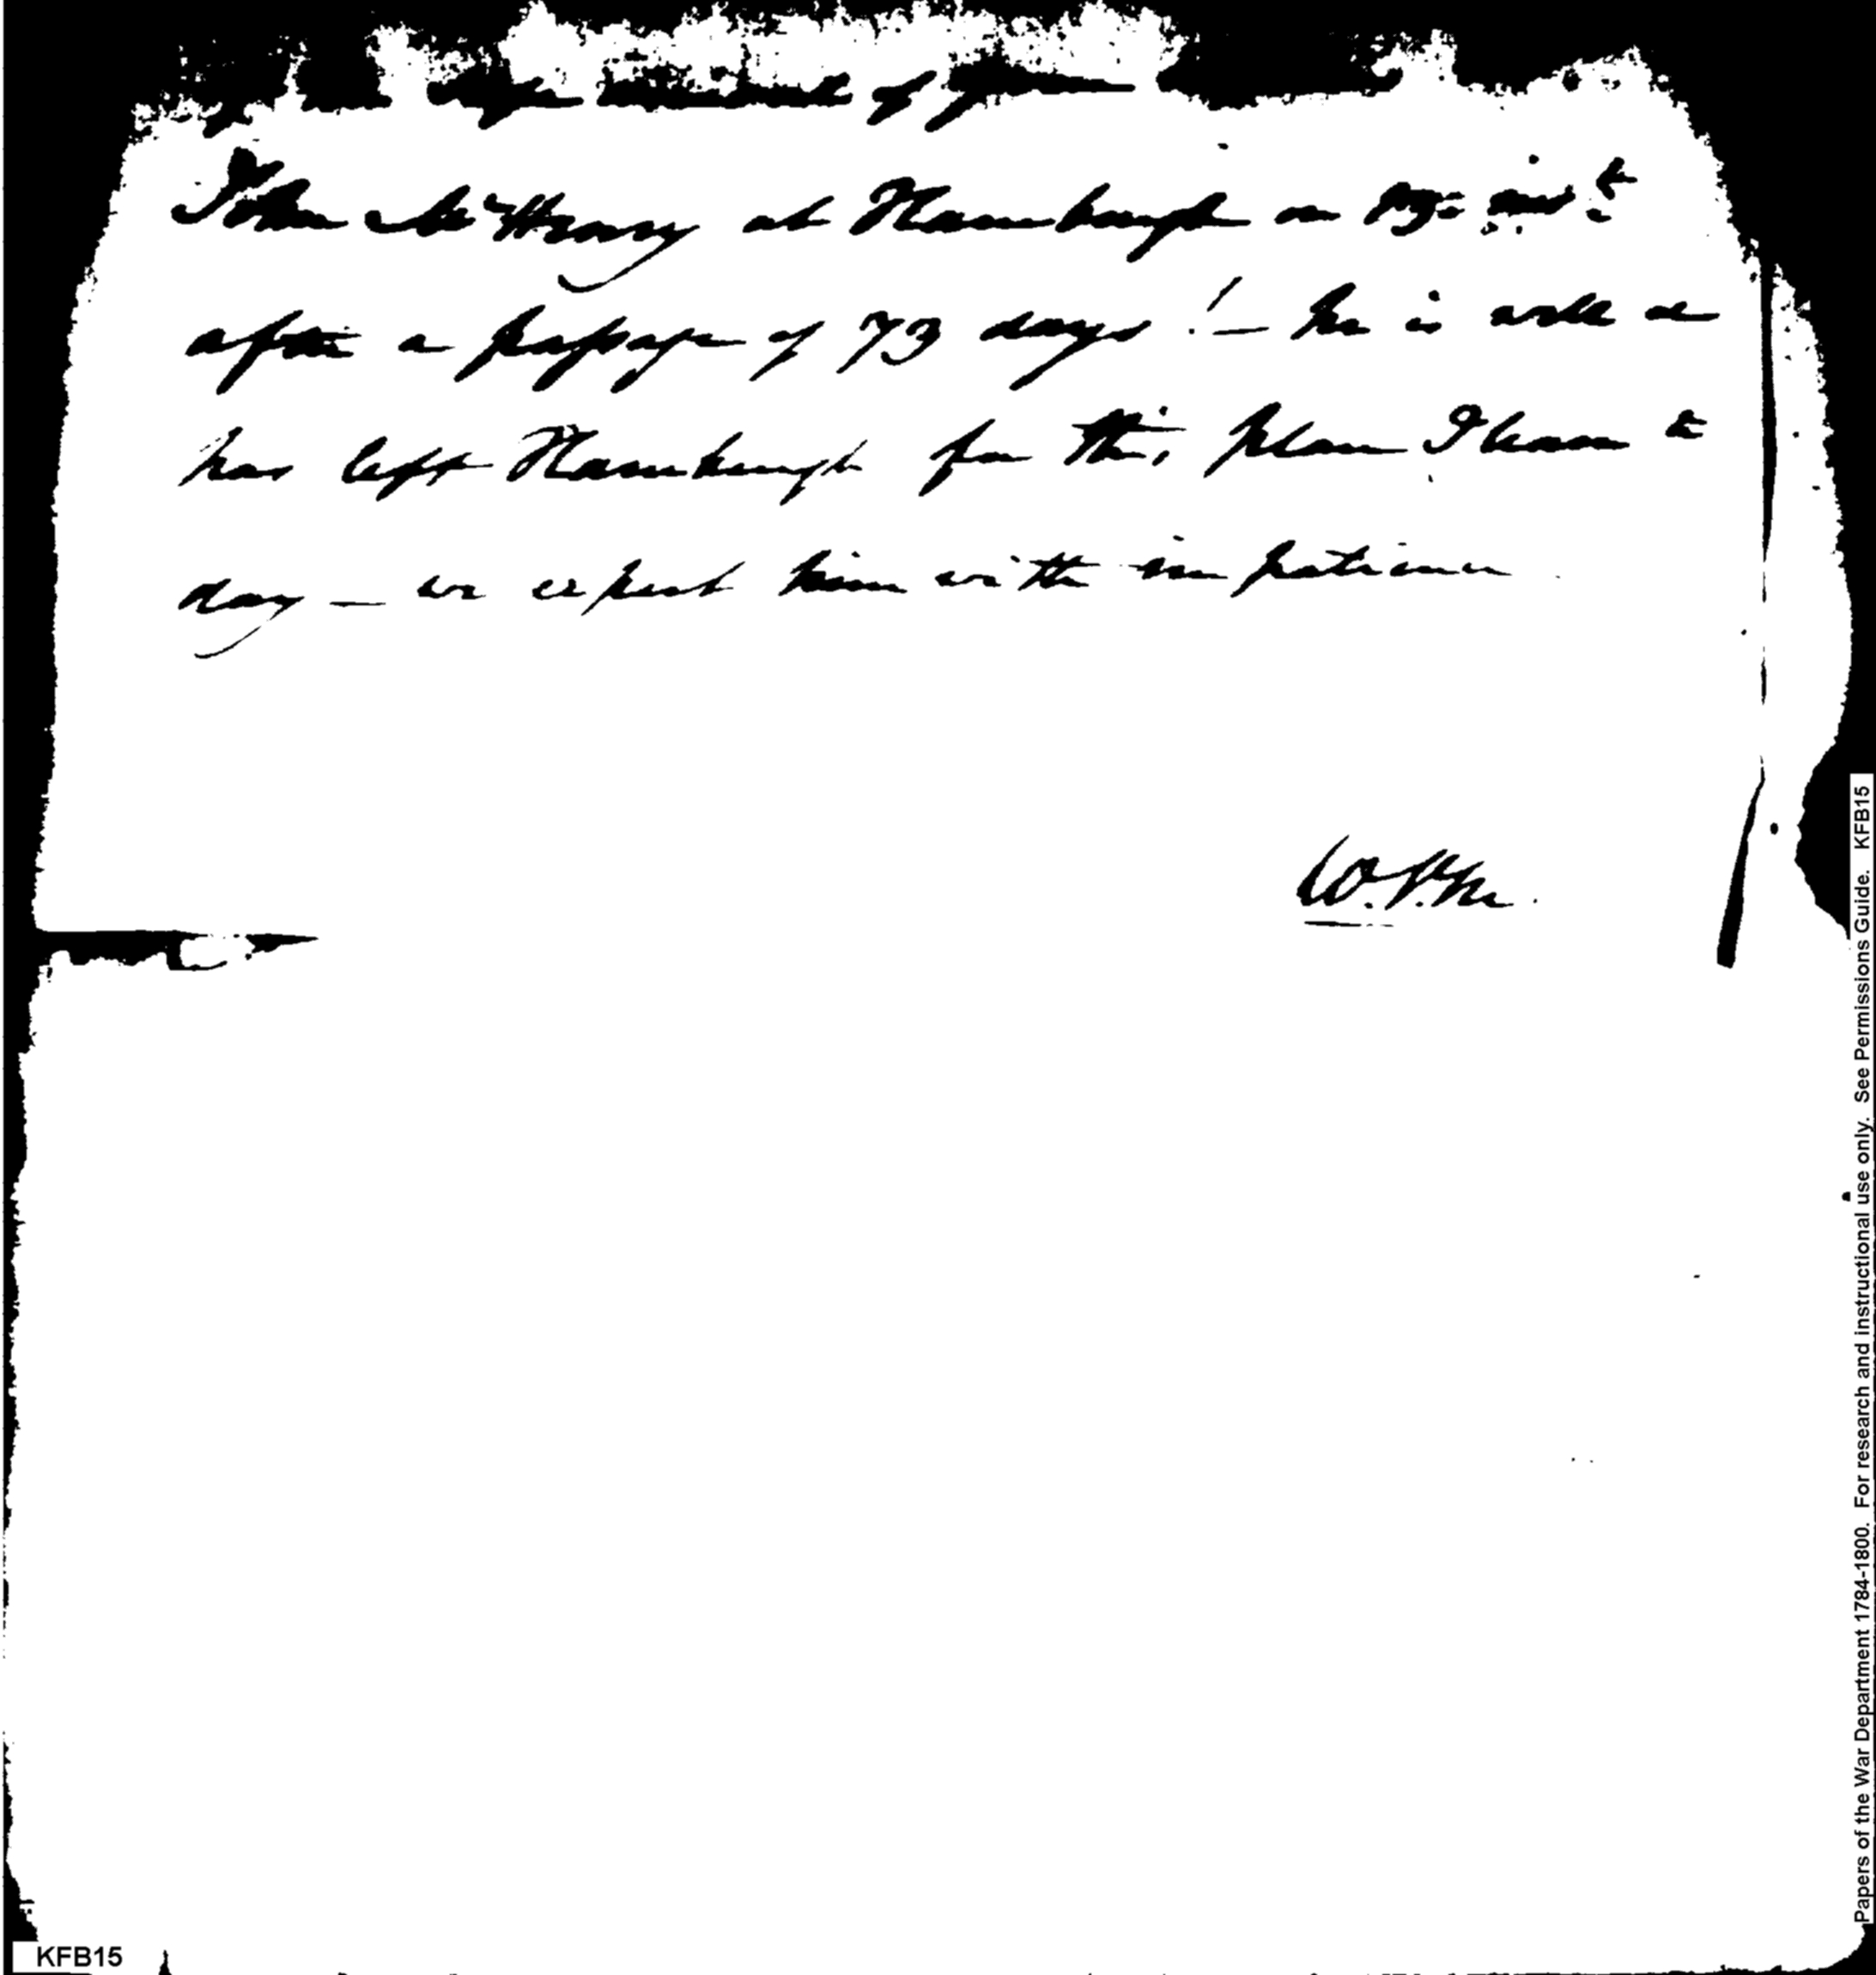 of
John McHenry at Hamburgh on
after a passage of 73 days! — he is well &
has left Hamburgh for this place I learn to
day — we expect him with impatience
W.V.M.
KFB15
Papers of the War Department 1784-1800. For research and instructional use only. See Permissions Guide. KFB15